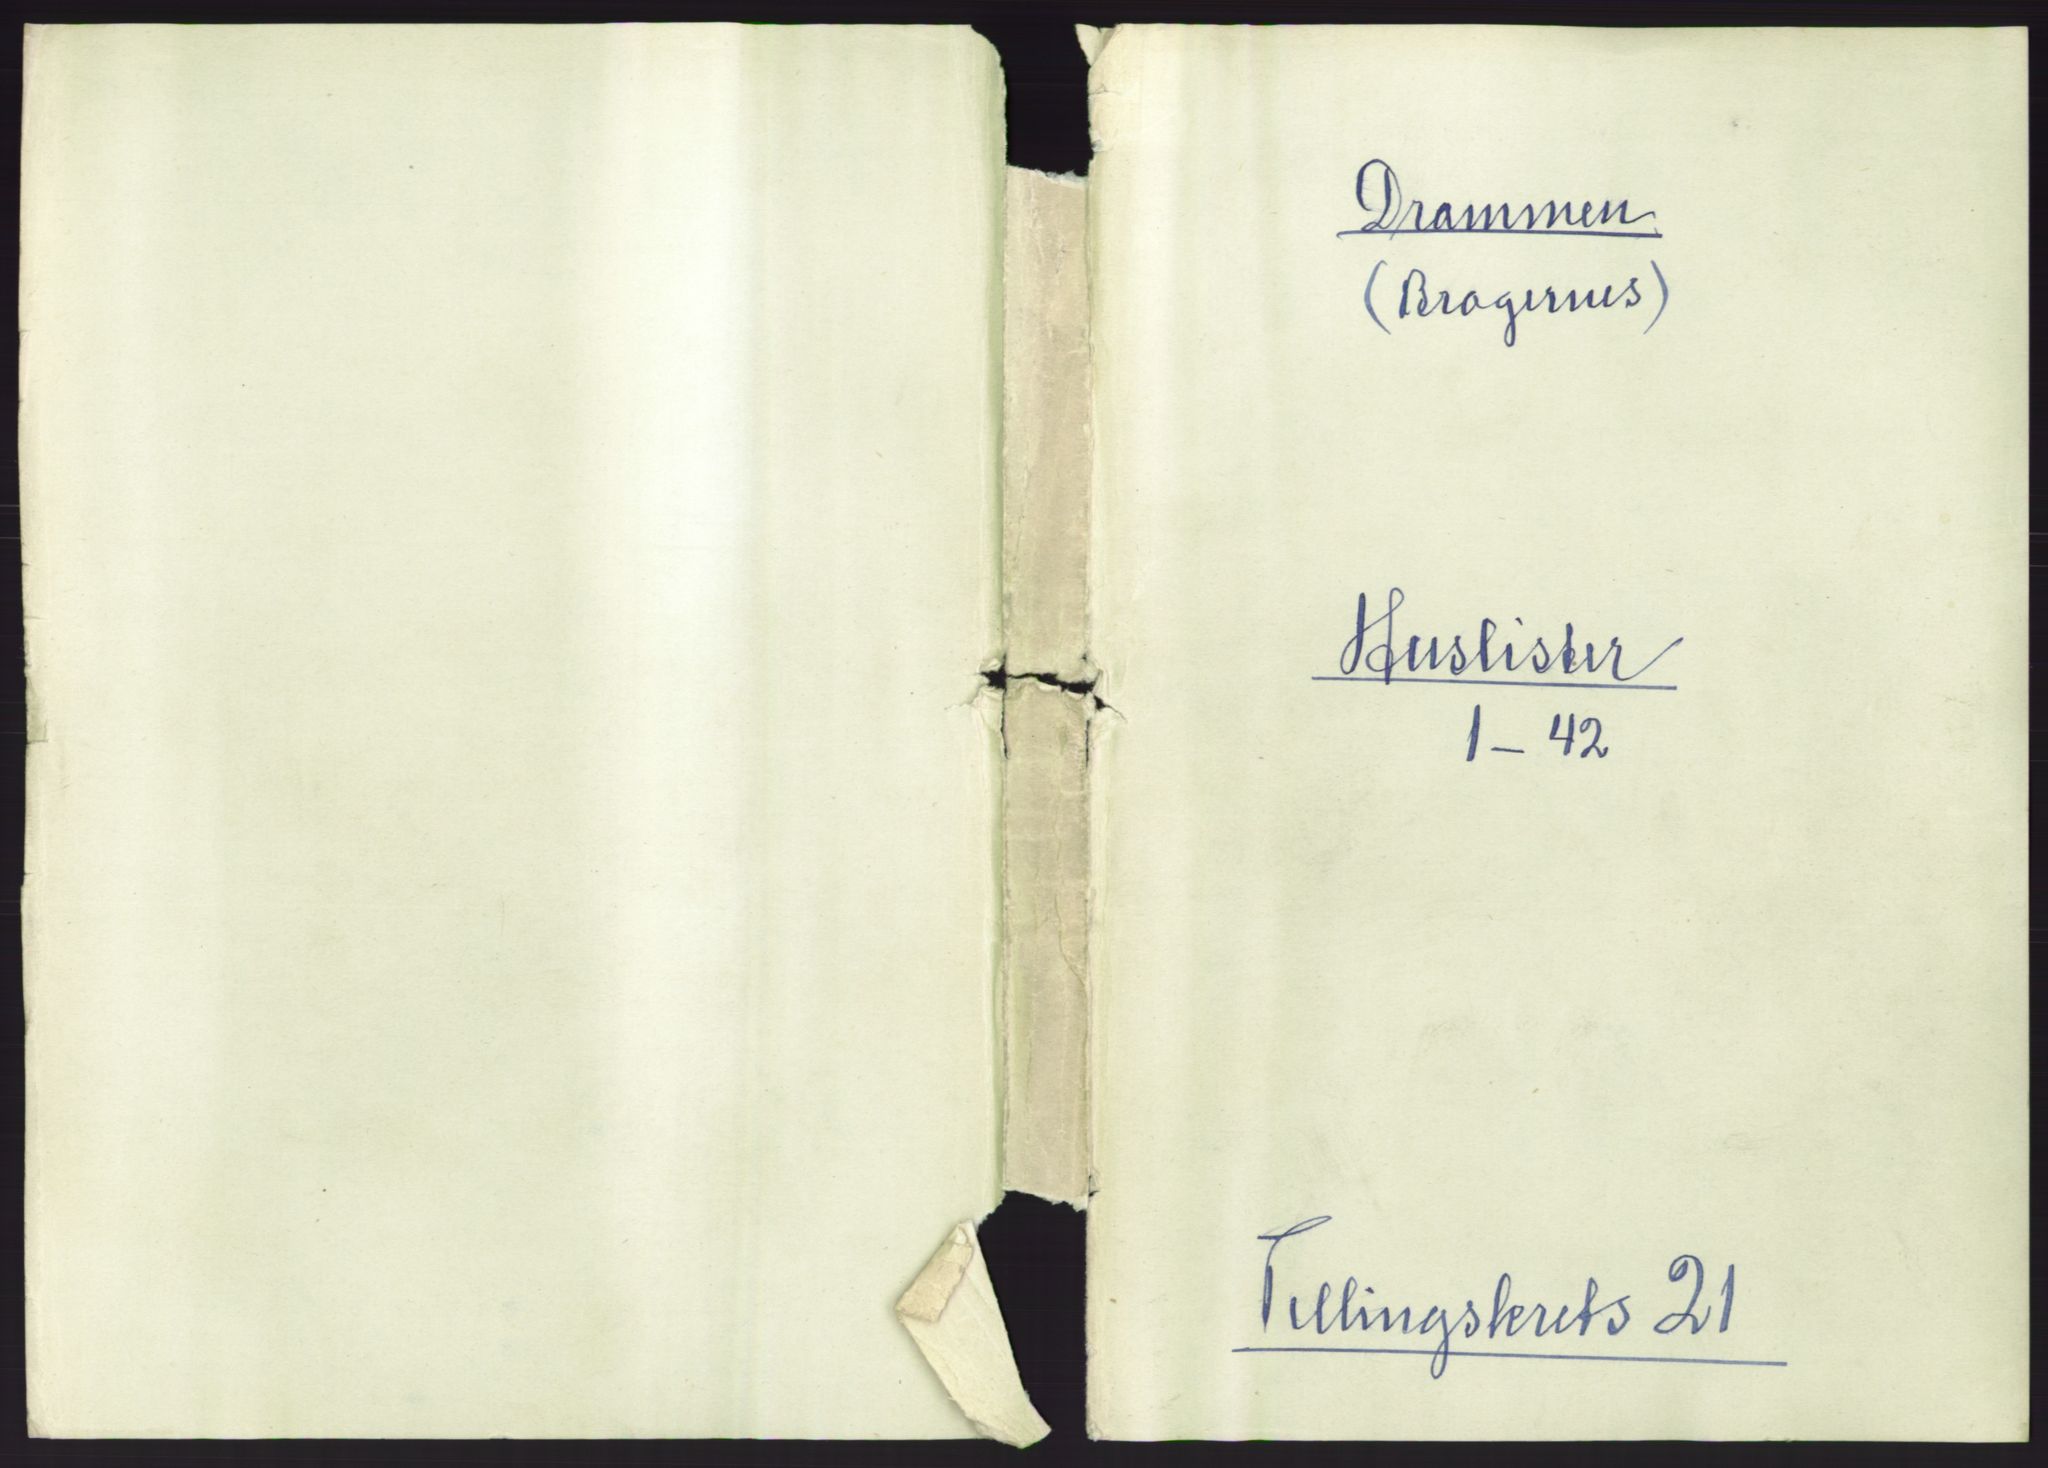 Drammen
(Bragernes)
Huslister
1 - 42
Tellingskrets 21